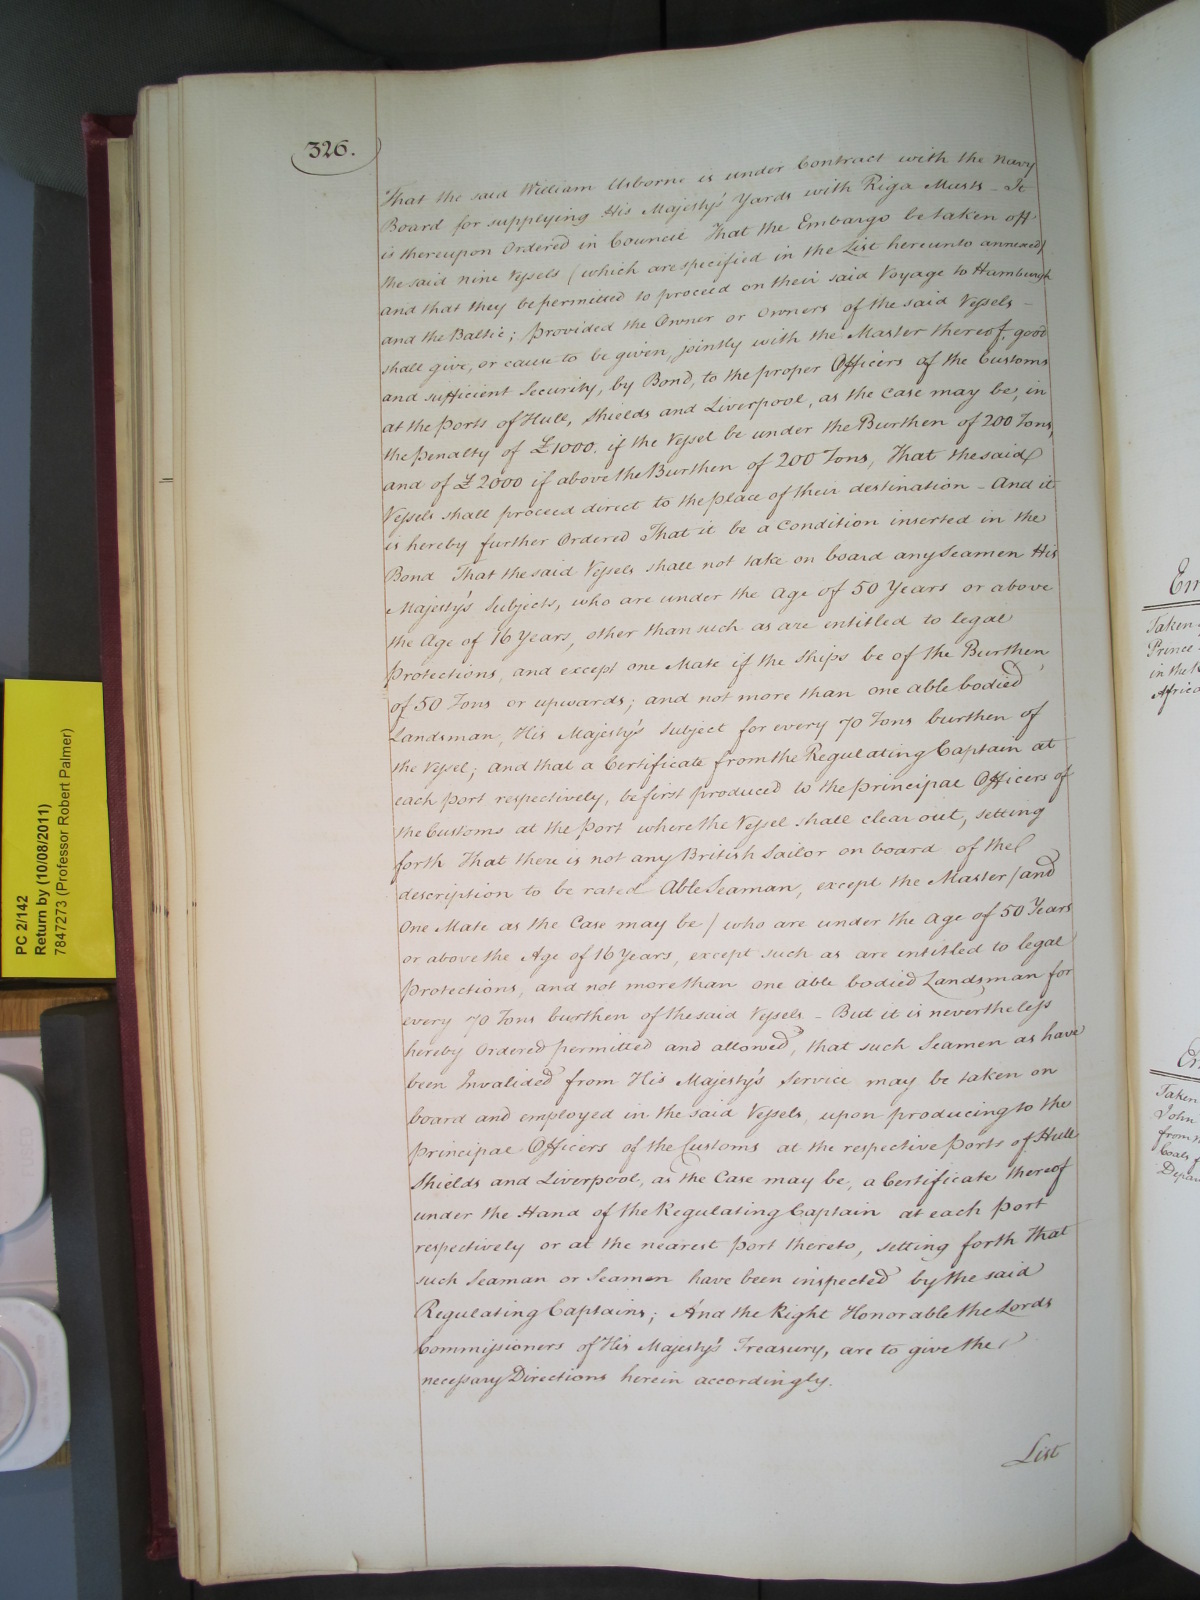 326.
That the said William Usborne is under Contract with the Navy
Board for supplying His Majesty's Yards with Riga Masts – It
is thereupon Ordered in Council That the Embargo be taken off
the said nine Vessels (which are specified in the List hereunto annexed)
and that they be permitted to proceed on their said Voyage to Hamburgh
and the Baltic; provided the Owner or Owners of the said Vessels –
shall give, or cause to be given, jointly with the Master thereof, good
and sufficient Security, by Bond, to the proper Officers of the Customs
at the Ports of Hull, Shields and Liverpool, as the case may be, in
the Penalty of £1000. if the Vessel be under the Burthen of 200 Tons,
and of £2000 if above the Burthen of 200 Tons, That the said
Vessels shall proceed direct to the place of their destination – And it
is hereby further Ordered That it be a Condition inserted in the
Bond That the said Vessels shall not take on board any Seamen His
Majesty's Subjects, who are under the Age of 50 Years or above
the Age of 16 Years, other than such as are entitled to legal
Protections, and except one Mate if the Ships be of the Burthen
of 50 Tons or upwards; and not more than one able bodied
Landsman, His Majesty's Subject for every 70 Tons burthen of
the Vessel; and that a Certificate from the Regulating Captain at
each Port respectively, be first produced to the principal Officers of
the Customs at the Port where the Vessel shall clear out, setting
forth That there is not any British Sailor on board of the
description to be rated Able Seaman, except the Master (and
One Mate as the Case may be) who are under the Age of 50 Years
or above the Age of 16 Years, except such as are entitled to legal
Protections, and not more than one able bodied Landsman for
every 70 Tons burthen of the said Vessels – But it is nevertheless
hereby Ordered permitted and allowed, that such Seamen as have
been Invalided from His Majesty's Service may be taken on
board and employed in the said Vessels, upon producing to the
principal Officers of the Customs at the respective Ports of Hull
Shields and Liverpool, as the Case may be, a Certificate thereof
under the Hand of the Regulating Captain at each Port
respectively or at the nearest Port thereto, setting forth that
such Seaman or Seamen have been inspected by the said
Regulating Captains; And the Right Honorable the Lords
Commissioners of His Majesty's Treasury, are to give the
necessary Directions herein accordingly.
List
PC 2/142
Return by (10/08/2011)
7847273 (Professor Robert Palmer)
Em
Taken
Prince
in the
Africa
Em
Taken
John
from
Coals